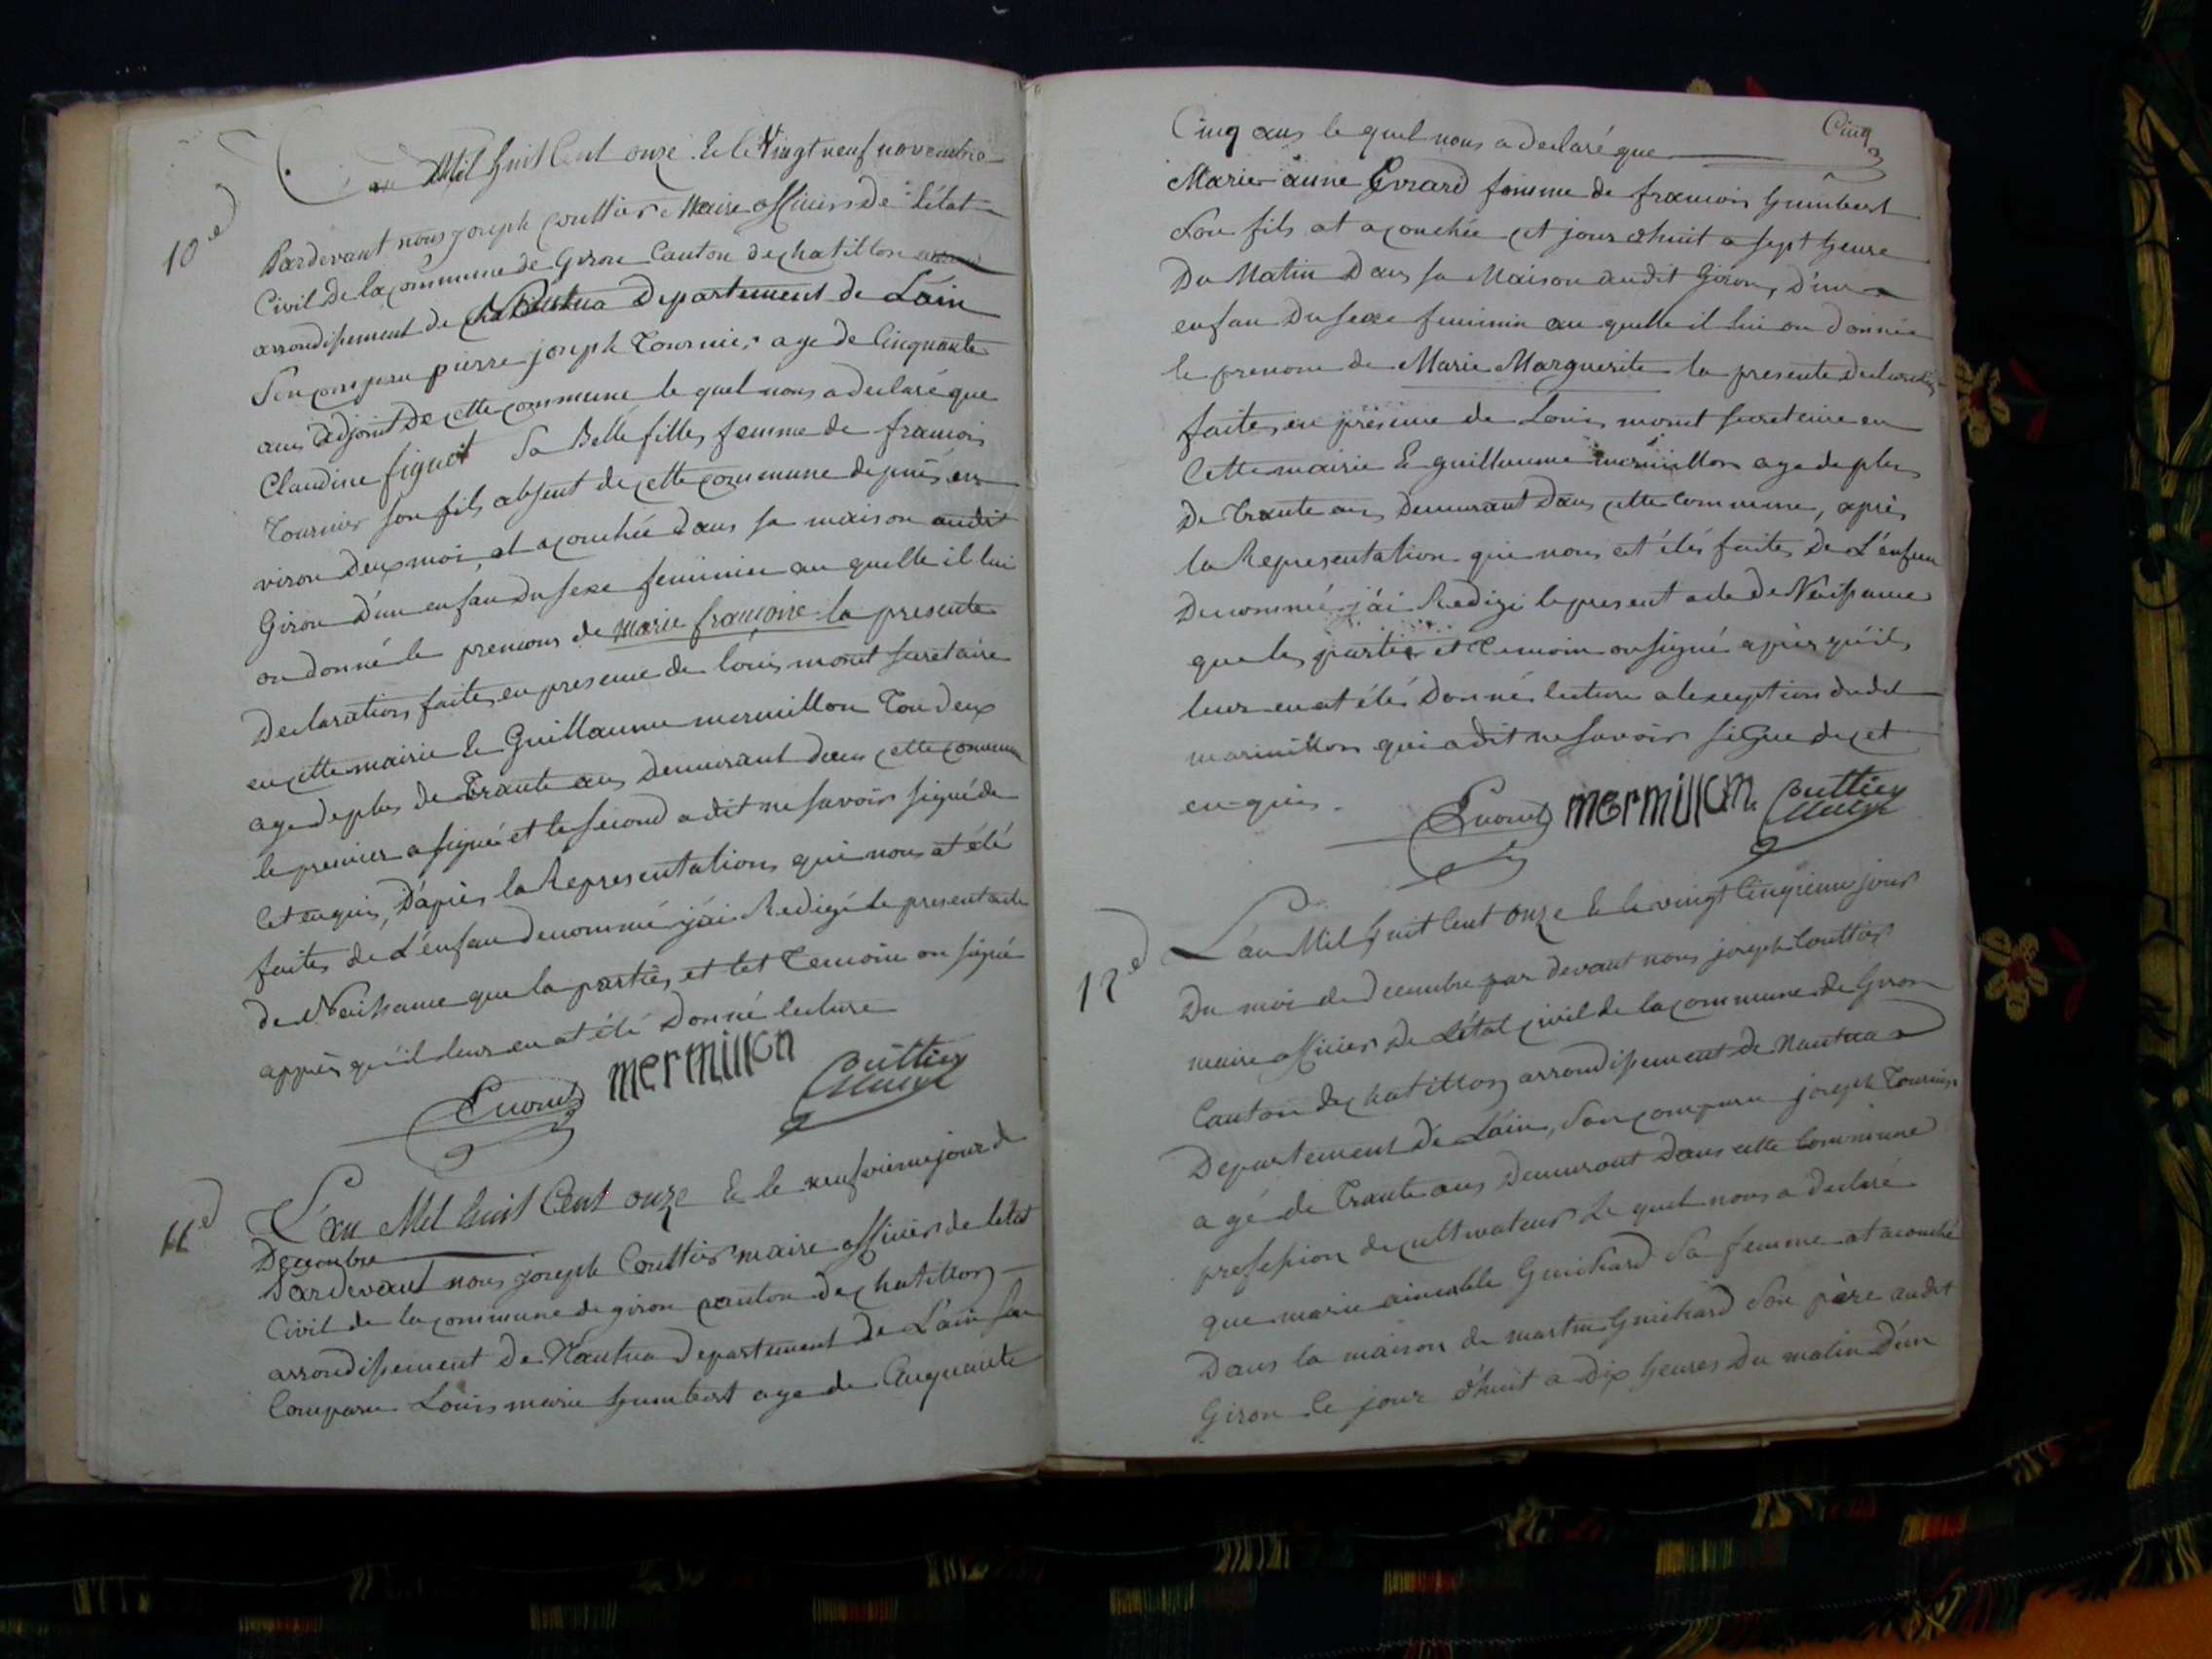 10e
L'an Mil huit Cent onze & le Vingt neuf novembre
Pardevant nous joseph Couttier Maire officier de L'état
Civil de la commune de Giron Canton de chatillon
arrondissement de Nantua Departement de L'ain
Son comparu pierre joseph Tournier age de Cinquante
ans adjoint de cette commune le quel nous a declaré que
Claudine figuet Sa Belle fille, femme de francois
Tournier son fils absent de cette commune depuis en
viron deux moi, at acouchée dans sa maison audit
Giron d'un enfan du sexe feminin au quelle il lui
on donné le prenons de marie françoise la presente
Declaration faite, en presence de louis monet secretaire
en cette mairie & Guillaume mermillon Tou deux
age de plus de Trante ans Demeurant dans cette commune
le premier a signé et le second a dit ne savoir signé de
cet enquis, D'après la Representation, qui nous at été
faites de L'enfan denommé j'ai Redigé le present acte
de Naissance que la parties, et let Temoin on signé
apprès qu'il leur en at été Donné lecture
mermillon Couttier
Maire
11e
L'an Mil huit Cent onze & le neufvieme jour de
Decembre
Pardevant nous joseph Couttier maire officier de l'etat
Civil de la commune de giron canton de chatillon
arrondissement de Nantua Departement de L'ain son
Comparu Louis marie humbert age de Cinquante
Cinq
Cinq ans le quel nous a declaré que
Marie anne Evrard femme de francois humbert
Son fils at acouchée cet jour d'huit a sept heure
Du Matin Dans sa Maison audit Giron, D'un
enfan Du sexe feminin au quelle il lui on Donnée
le prenom de Marie Marguerite la presente Declaration
faite, en presence de Louis monet secretaire en
Cette mairie & guillaume mermillon age de plus
De Trante ans Demeurant dans cette Commune, après
la Representation qui nous at étés faites De L'enfan
Denommé j'ai Redigé le present acte De Naissance
que les parties et Temoin on signé après qu'il
leur en at étés Donné lecture a l'exception dudit
marmillon qui a dit ne savoir signe de cet
enquis.
mermillon. Couttier
Maire
12e
L'an Mil huit Cent onze & le vingt Cinqieme jour
Du moi de Decembre par devant nous joseph Couttier
maire officier De L'état civil de la commune de Giron
Canton de chatillon arrondissement de Nantua
Departement De L'ain, Son comparu joseph Tournier
agé de Trante ans Demeurant Dans cette Commune
profession de cultivateur Le quel nous a declaré
que marie aimable Guichard Sa femme at acouché
Dans la maison de martin Guichard Son père audit
Giron le jour d'huit a Dix heures Du matin D'un